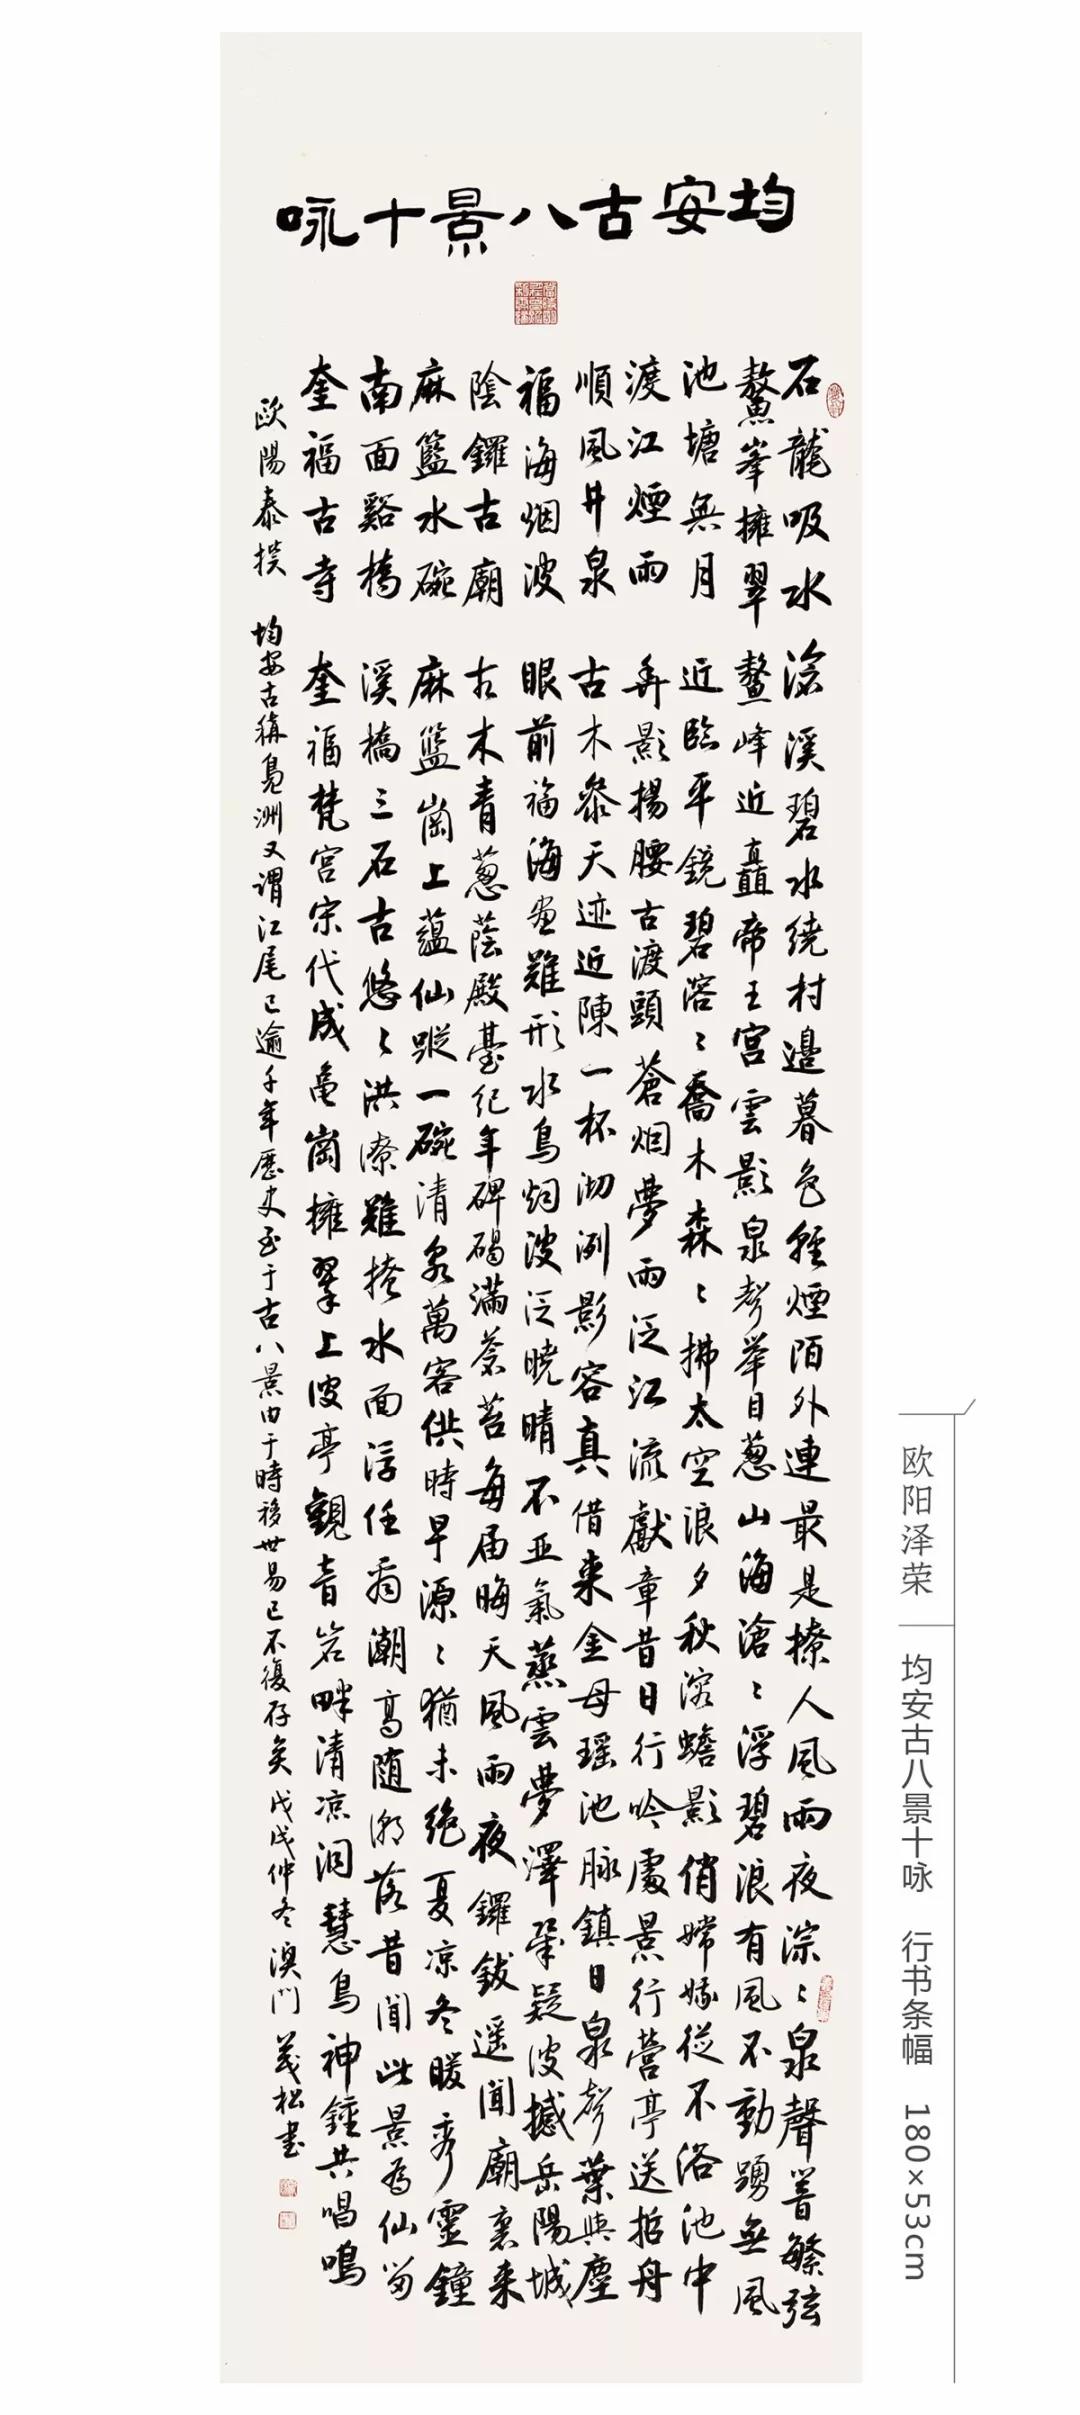 均安古八景十咏
石龍吸水 滄溪碧水繞村邊暮色輕煙陌外連最是撩人風雨夜淙〻泉聲普繁弦
鰲峯擁翠 鰲峰近矗帝王宫雲影泉聲举目蔥山海滄〻浮碧浪有風不動踴無風
池塘無月 近臨平鏡碧溶〻喬木森〻拂太空浪夕秋溶蟾影俏嫦娥從不浴池中
渡江煙雨 弄影揚腰古渡頭蒼烟夢雨泛江流獻章昔日行吟處景行營亭送舟
順風井泉 古木參天迹近陳一杯沏冽影容真借来金母瑶池脉鎮日泉聲葉與塵
福海烟波 眼前福海画難形水鳥烟波泛曉晴不亚氣蒸雲夢澤疑波撼岳陽城
陰鑼古廟 古木青蔥蔭殿臺纪年碑碣满蒼苔每届晦天風雨夜鑼鈸遥聞廟裏来
麻籃水碗 麻籃崗上蘊仙蹤一碗清泉萬客供時旱源〻猶未绝夏凉冬暖秀靈鐘
南面谿橋 溪橋三石古悠〻洪潦難掩水面浮任爾潮高随潮落昔聞此景為仙留
奎福古寺 奎福梵宫宋代成龜崗擁翠上波亭觀音岩畔清凉洞慧鳥神鐘共唱鳴
歐陽泰撰 均安古稱凫洲又謂江尾已逾千年歷史至于古八景由于時移世易已不復存矣 戊戌仲冬澳門松書
欧阳泽荣 均安古八景十咏 行书条幅 180×53cm